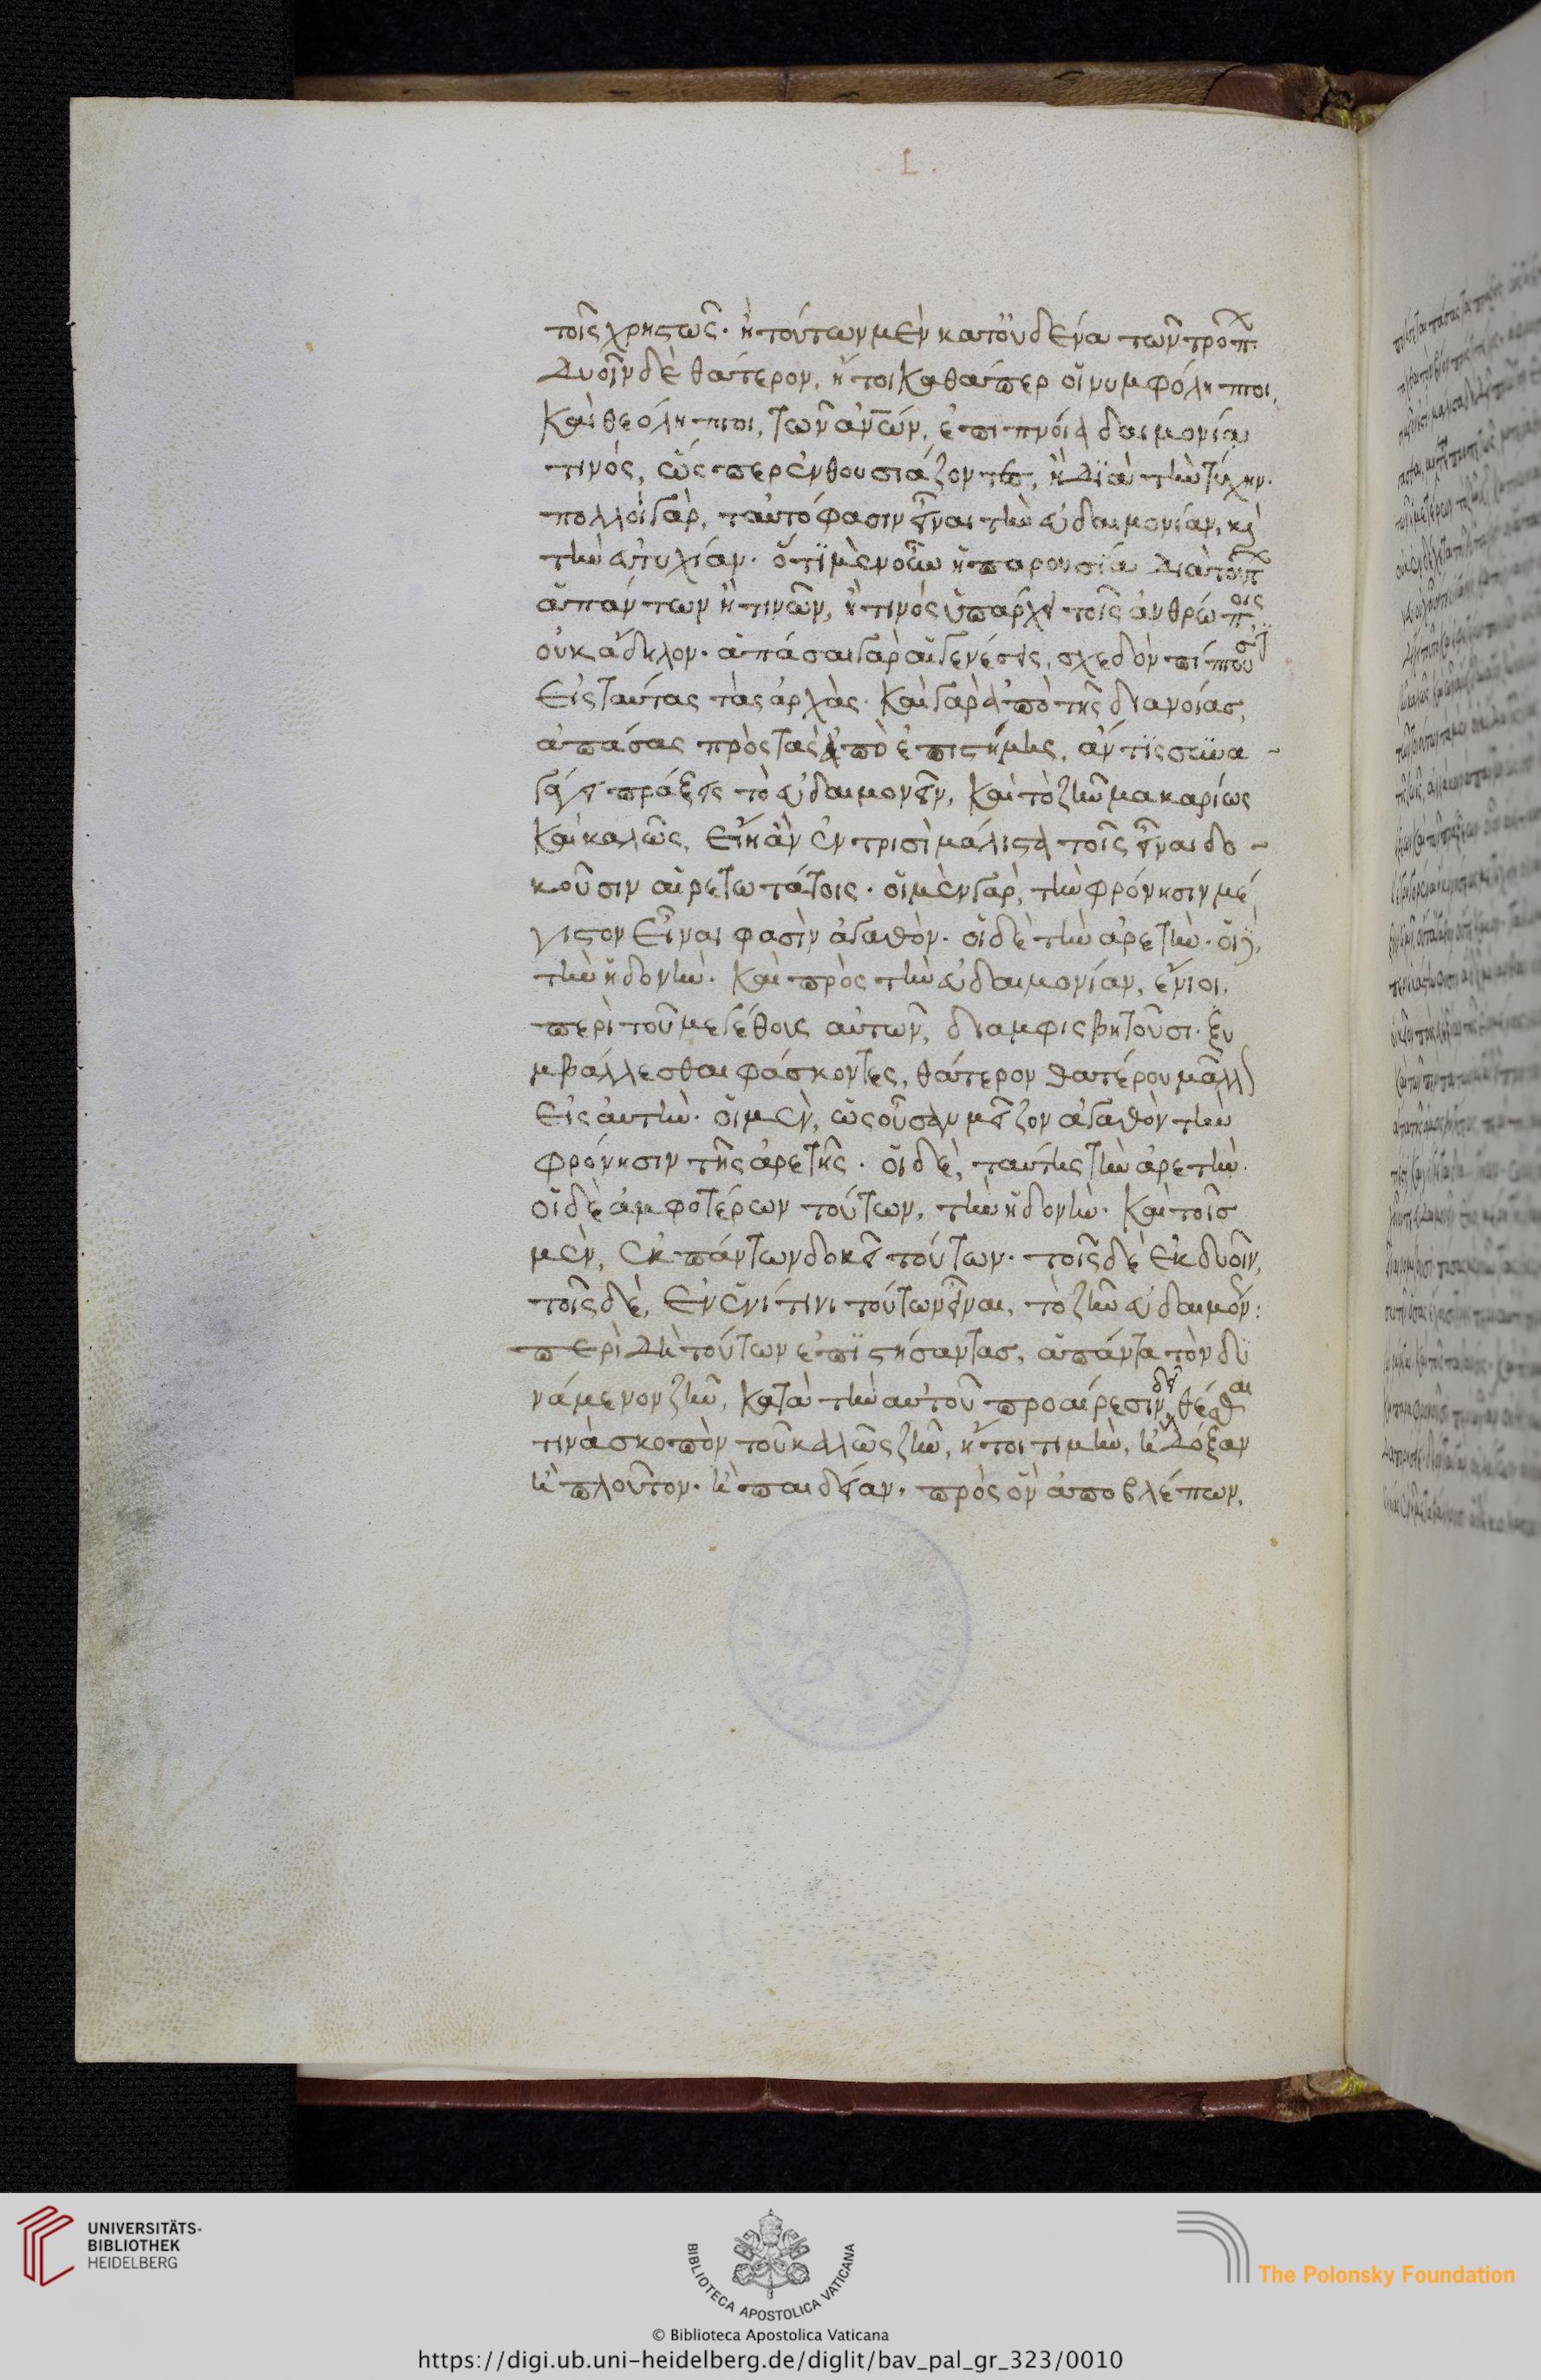 L.
τοῖς χρηστῶς· ἢ τούτων μὲν κατ' οὐδένα τῶν τρόπ
Δυοῖν δὲ θάτερον, ἤτοι καθάπερ οἱ νυμφόληπτοι,
Καὶ θεόληπτοι, τῶν ἀνῶν, ἐπιπνοίᾳ δαιμονία
τινός, ὥσπερ ἐνθουσιάζοντες, ἢ Διὰ τὴν τύχην·
πολλοὶ γὰρ, ταὐτό φασιν εἶναι τὴν εὐδαιμονίαν, καὶ
τὴν εὐτυχίαν· ὅτι μὲν οὖν ἡ παρουσία Διὰ τούτ
ἁπάντων ἢ τινῶν, ἢ τινός ὑπάρχει τοῖς ἀνθρώποις,
οὐκ ἄδηλον· ἁπάσαι γὰρ αἱ γενέσεις, σχεδὸν πίπτουσιν
Εἰς ταύτας τὰς ἀρχὰς· Καὶ γὰρ ἀπὸ τῆς διανοίας,
ἁπάσας πρὸς τὰς ἀπὸ ἐπιστήμης, ἄν τις συνα-
γάγοι πράξεις τὸ εὐδαιμονεῖν, Καὶ τὸ ζῆν μακαρίως
Καὶ καλῶς, Εἴη ἂν ἐν τρισὶ μάλιστα τοῖς εἶναι δο-
κοῦσιν αἱρετωτάτοις· οἱ μὲν γὰρ, τὴν φρόνησιν μέ
γιστον Εἶναι φασὶν ἀγαθὸν· οἱ δὲ τὴν ἀρετὴν· οἱ δὲ,
τὴν ἡδονὴν· Καὶ πρὸς τὴν εὐδαιμονίαν, ἔνιοι.
περὶ τοῦ μεγέθους αὐτῶν, διαμφισβητοῦσι· ξυ
μβάλλεσθαι φάσκοντες, θάτερον θατέρου μᾶλλ
Εἰς αὐτὴν· οἱ μὲν, ὡς οὖσαν μεῖζον ἀγαθὸν τὴν
φρόνησιν τῆς ἀρετῆς· οἱ δὲ, ταύτης τὴν ἀρετὴν·
οἱ δὲ ἀμφοτέρων τούτων, τὴν ἡδονὴν· Καὶ τοῖς
μὲν, ἐκ πάντων δοκεῖ τούτων· τοῖς δὲ ἐκ δυοῖν,
τοῖς δὲ, Ἐν ἑνί τινι τούτων εἶναι, τὸ ζῆν εὐδαιμόν:
περὶ Δὴ τούτων ἐπιστήσαντας, ἅπαντα τὸν δυ
νάμενον ζῆν, Κατὰ τὴν αὐτοῦ προαίρεσιν δεῖ θέσθαι
τινὰ σκοπὸν τοῦ καλῶς ζῆν, ἤτοι τιμὴν, ἢ Δόξαν
ἢ πλοῦτον· ἢ παιδείαν· πρὸς ὃν ἀποβλέπων,
UNIVERSITÄTS-
BIBLIOTHEK
HEIDELBERG
BIBLIOTECA APOSTOLICA VATICANA
The Polonsky Foundation
© Biblioteca Apostolica Vaticana
https://digi.ub.uni-heidelberg.de/diglit/bav_pal_gr_323/0010